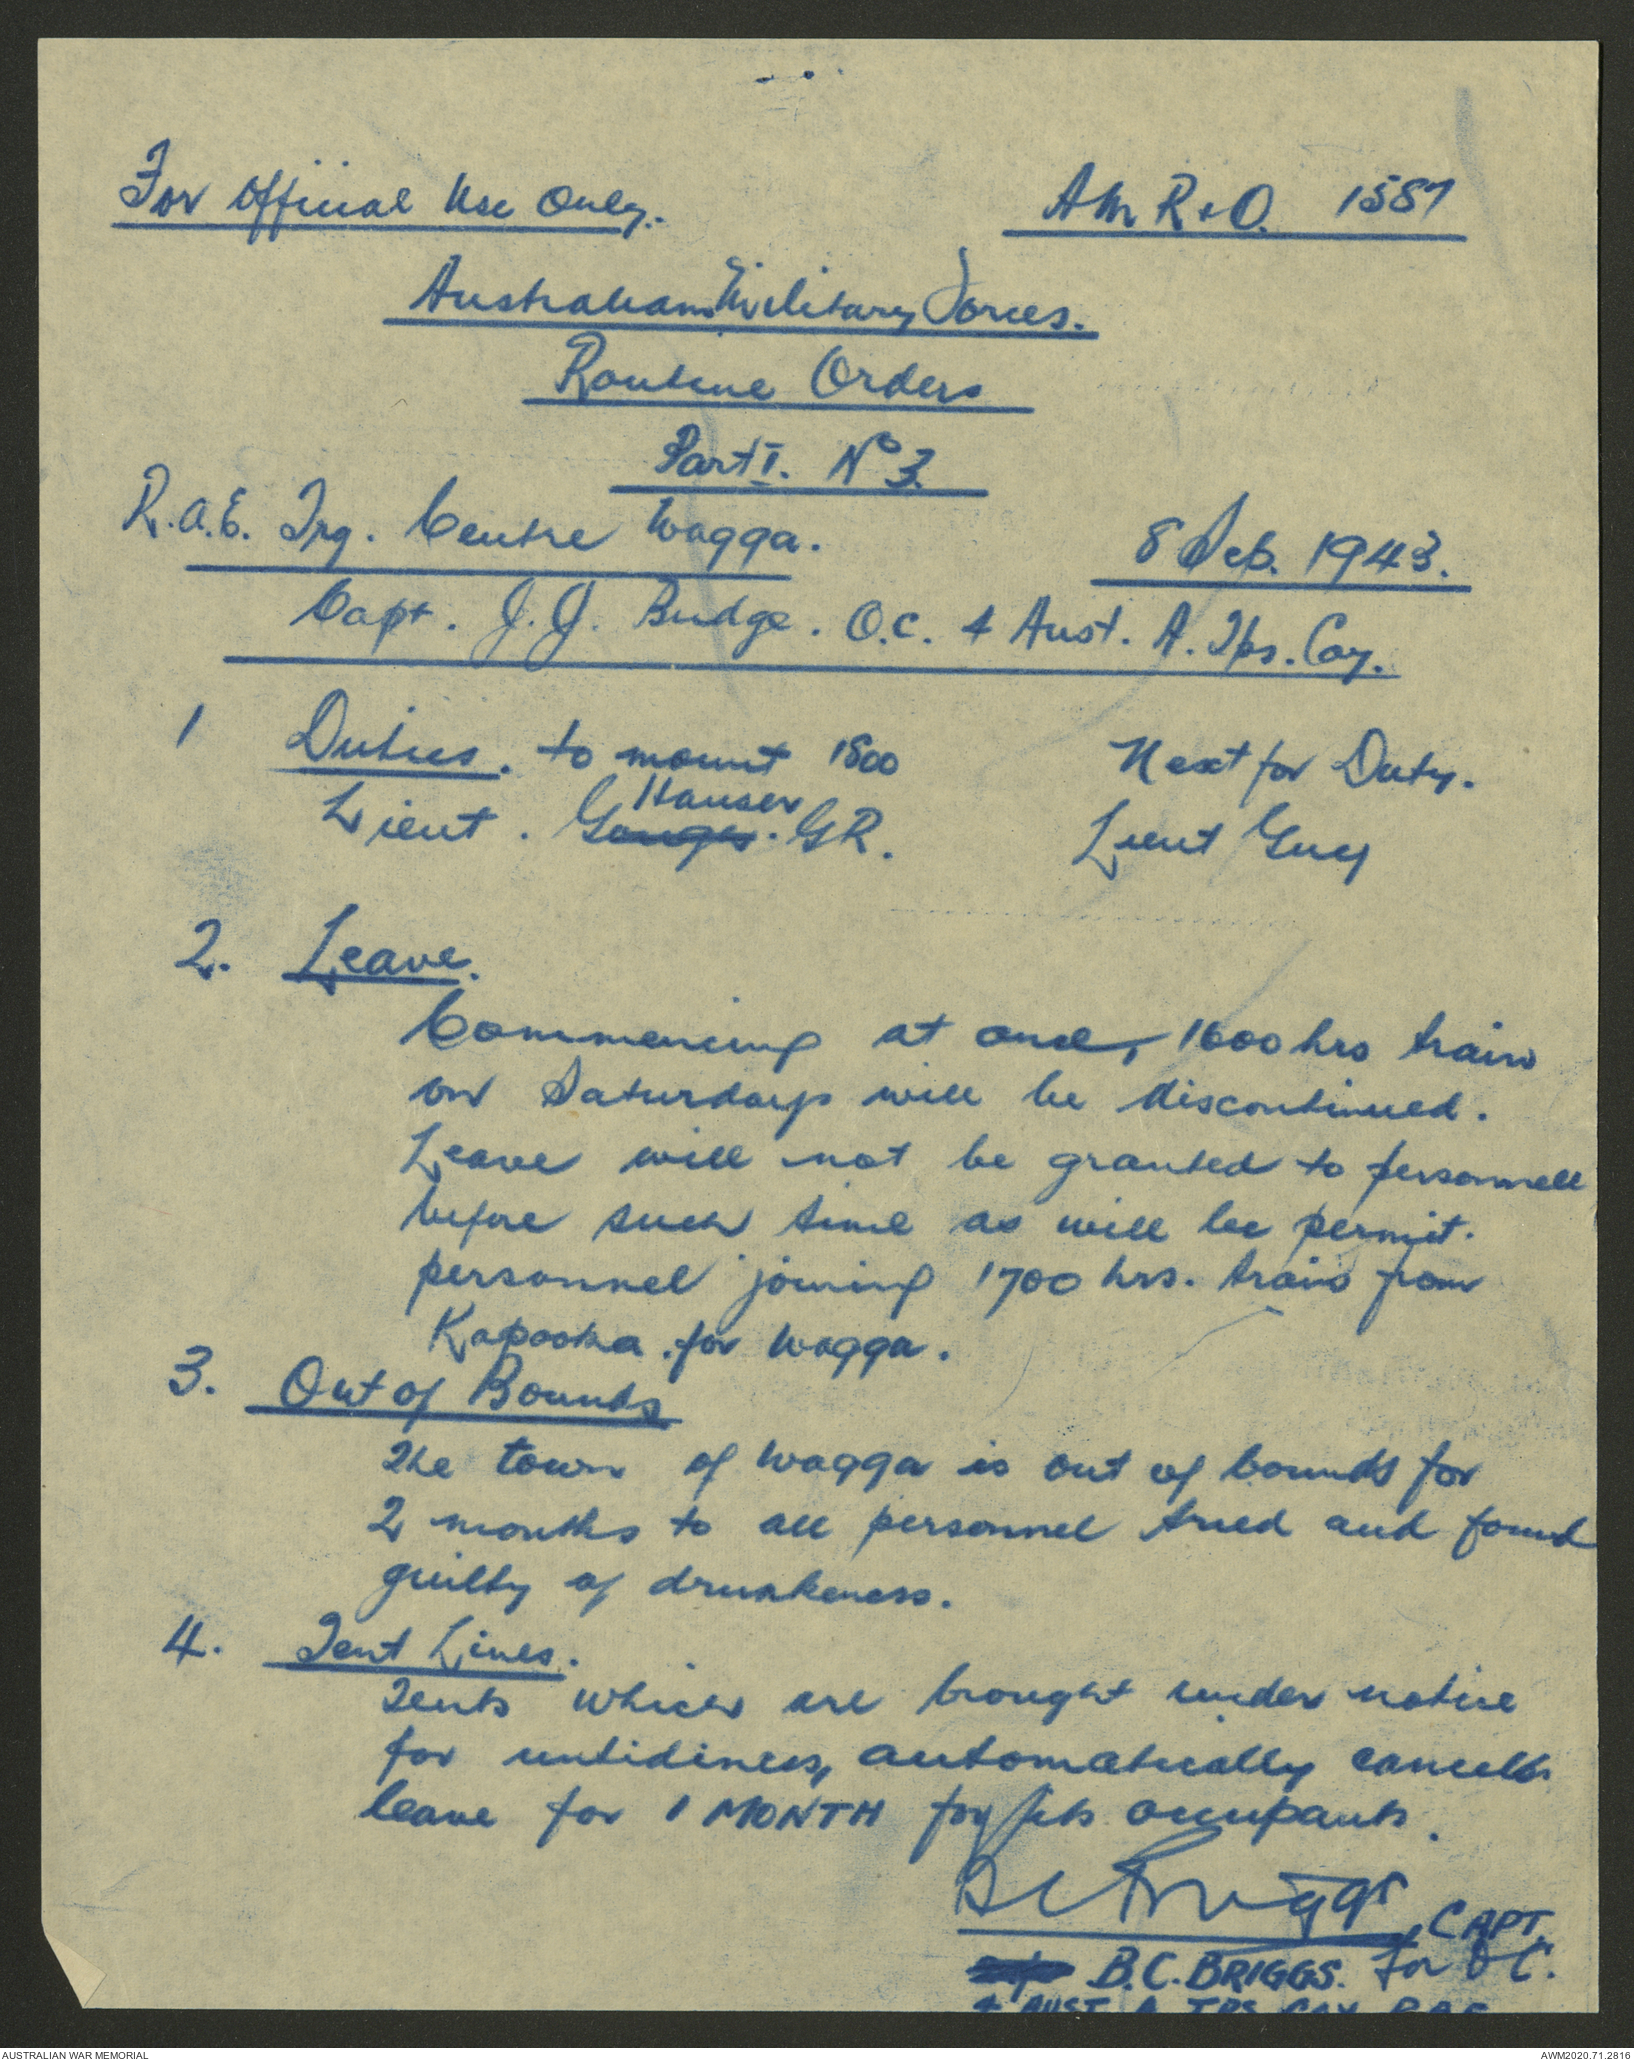 For Official Use Only.
AM R & O. 1587
Australian Military Forces.
Routine Orders
Part I. No 3.
R.A.E. Trg. Centre Wagga.
8 Feb. 1943.
Capt. J.J. Budge. O.C. 4 Aust. A. Tps. Coy.
1 Duties. to mount 1800 Next for Duty.
Hauser
Lieut. G.R. Lieut Guy
2. Leave.
Commencing at once, 1600 hrs train
on Saturdays will be discontinued.
Leave will not be granted to personnell
before such time as will be permit.
personnel joining 1700 hrs. train from
Kapooka. for Wagga.
3. Out of Bounds
The town of Wagga is out of bounds for
2 months to all personnel tried and found
guilty of drunkeness.
4. Tent Lines.
Tents which are brought under notice
for untidiness, automatically cancells
leave for 1 MONTH for its occupants.
BC Briggs, CAPT.
B.C. BRIGGS. for OC.
4 AUST A TPS COY RAE
AUSTRALIAN WAR MEMORIAL
AWM2020.71.2816